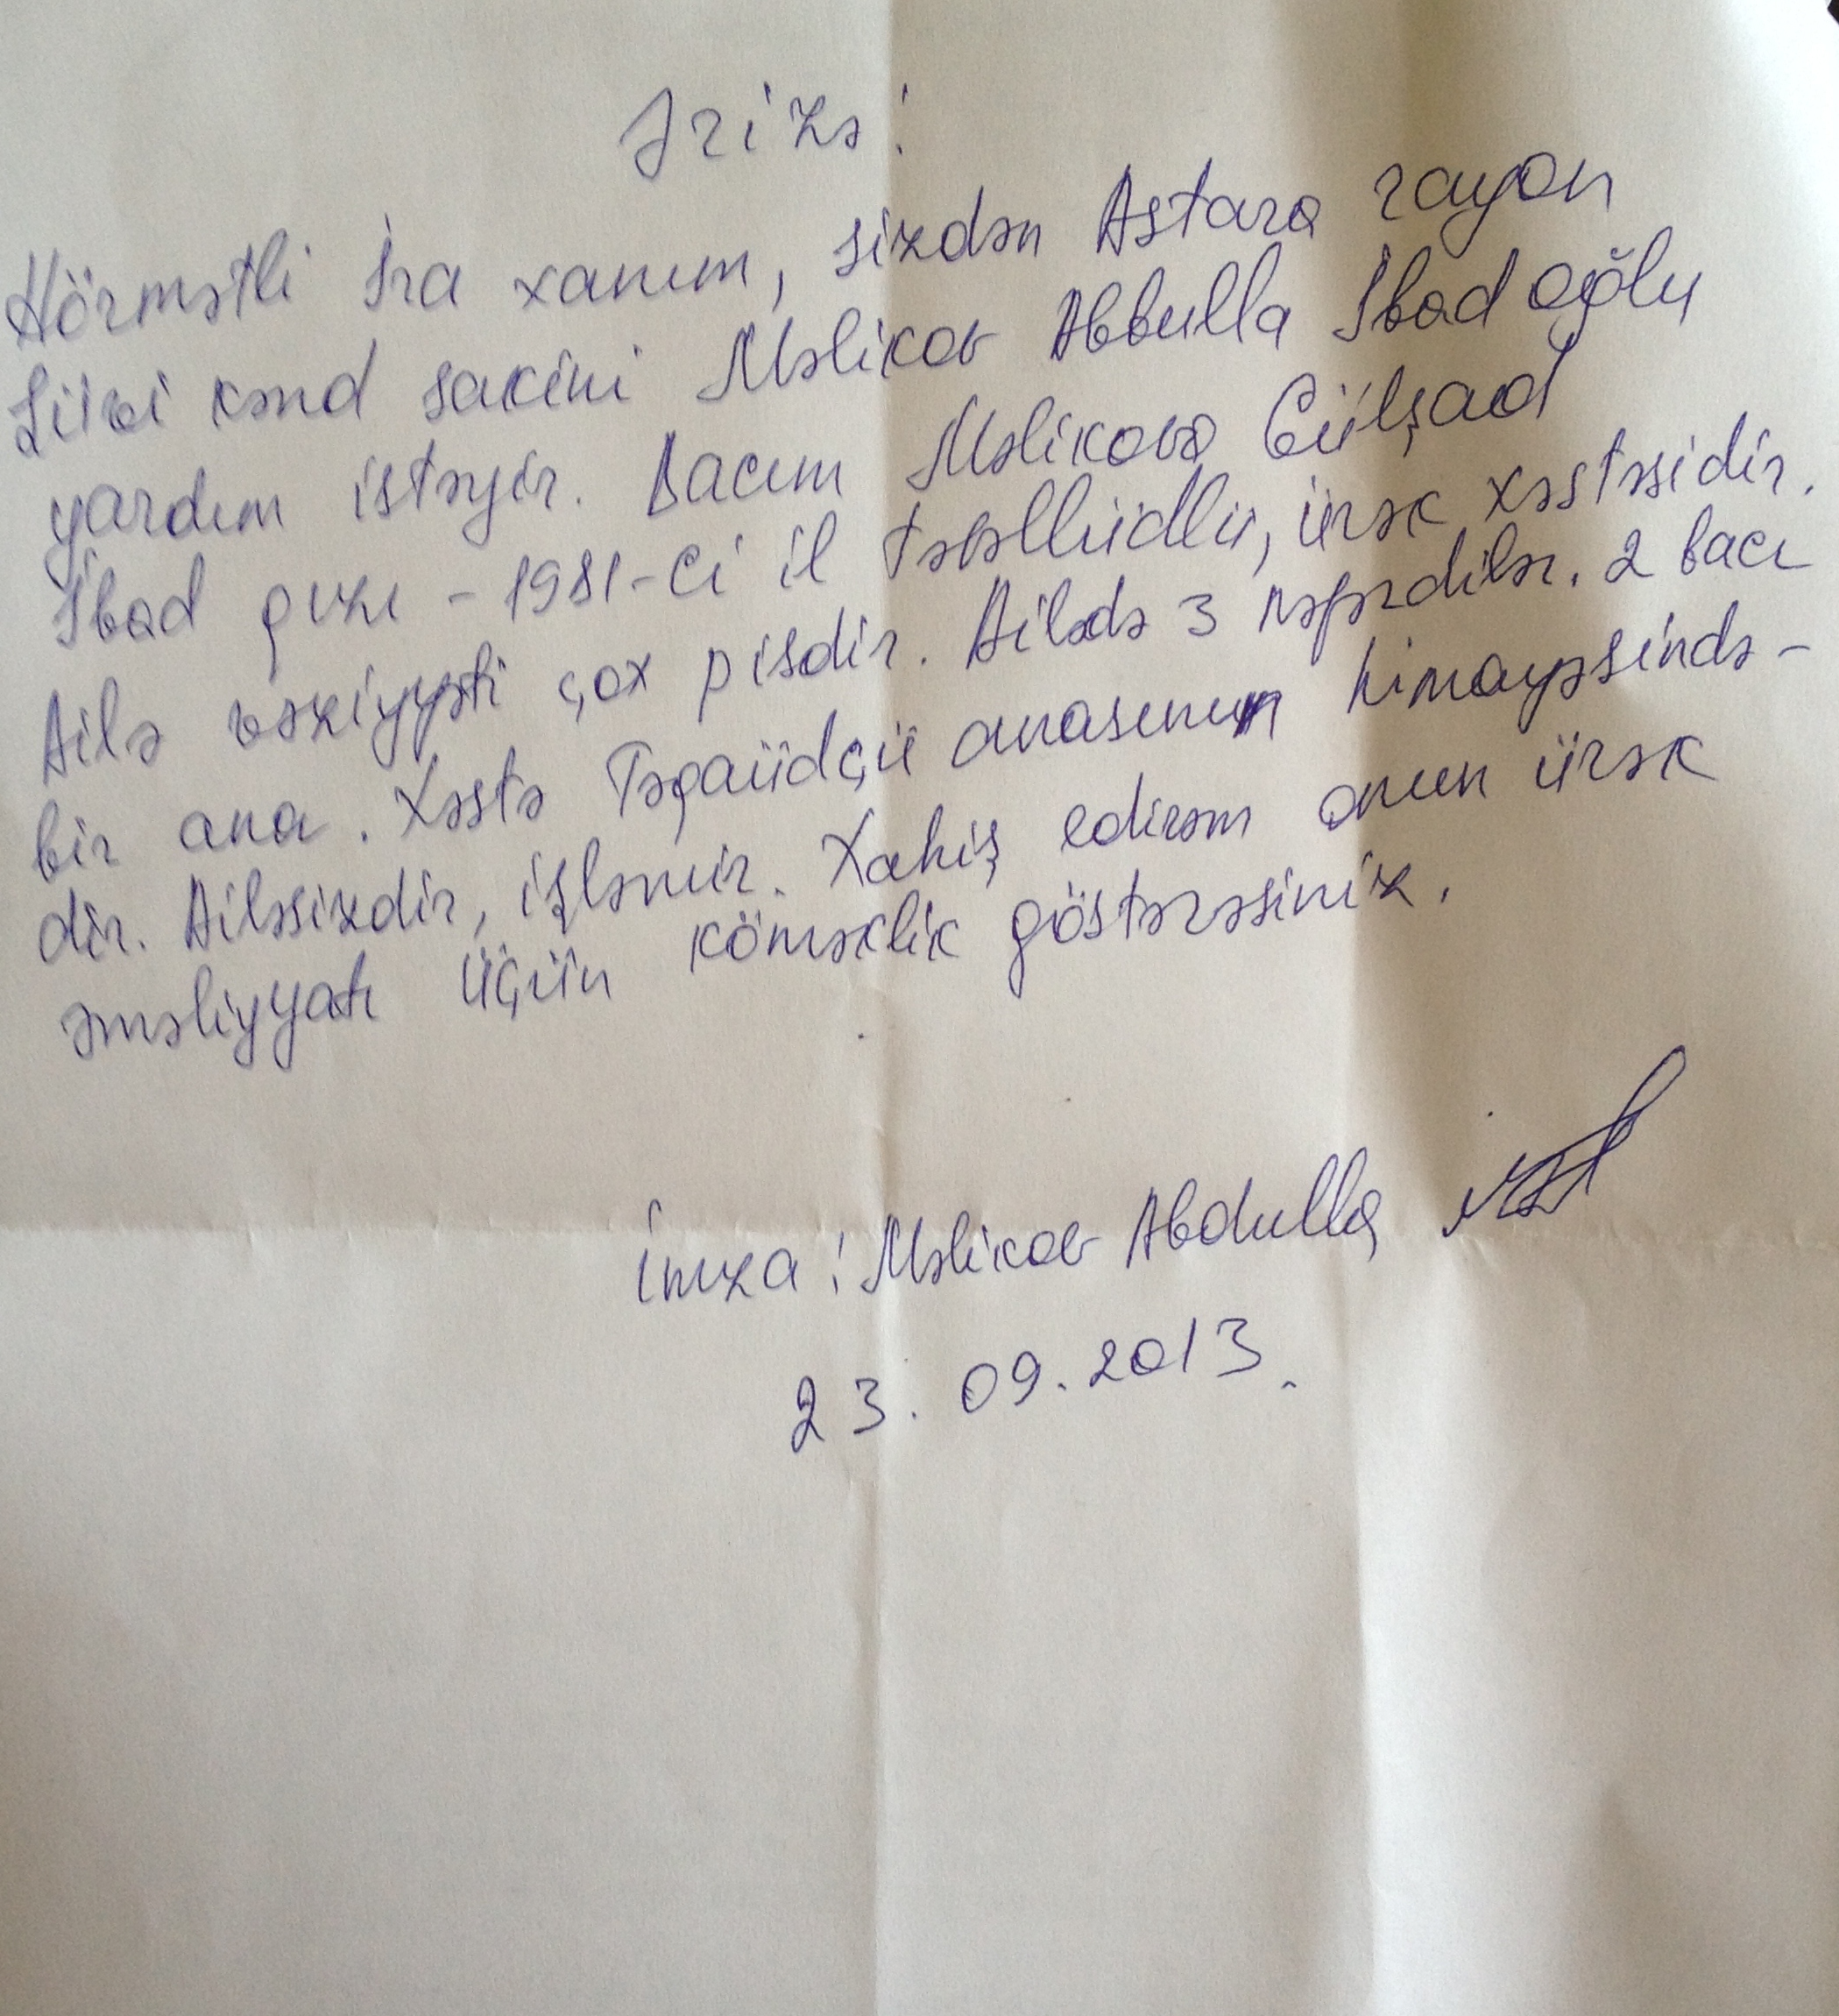 Ərizə:
Hörmətli İra xanım, sizdən Astara rayon
Şüvi kənd sakini Məlikov Abbulla İbad oğlu
yardım istəyir. Bacım Məlikova Gülşad
İbad qızı - 1981-ci il təvəllüdlü, ürək xəstəsidir.
Ailə vəziyyəti çox pisdir. Ailədə 3 nəfərdilər. 2 bacı
bir ana. Xəstə Təqaüdçü anasının himayəsində-
dir. Ailəsizdir, işləmir. Xahiş edirəm onun ürək
əməliyyatı üçün köməklik göstərəsiniz.
İmza: Məlikov Abdulla
23.09.2013.